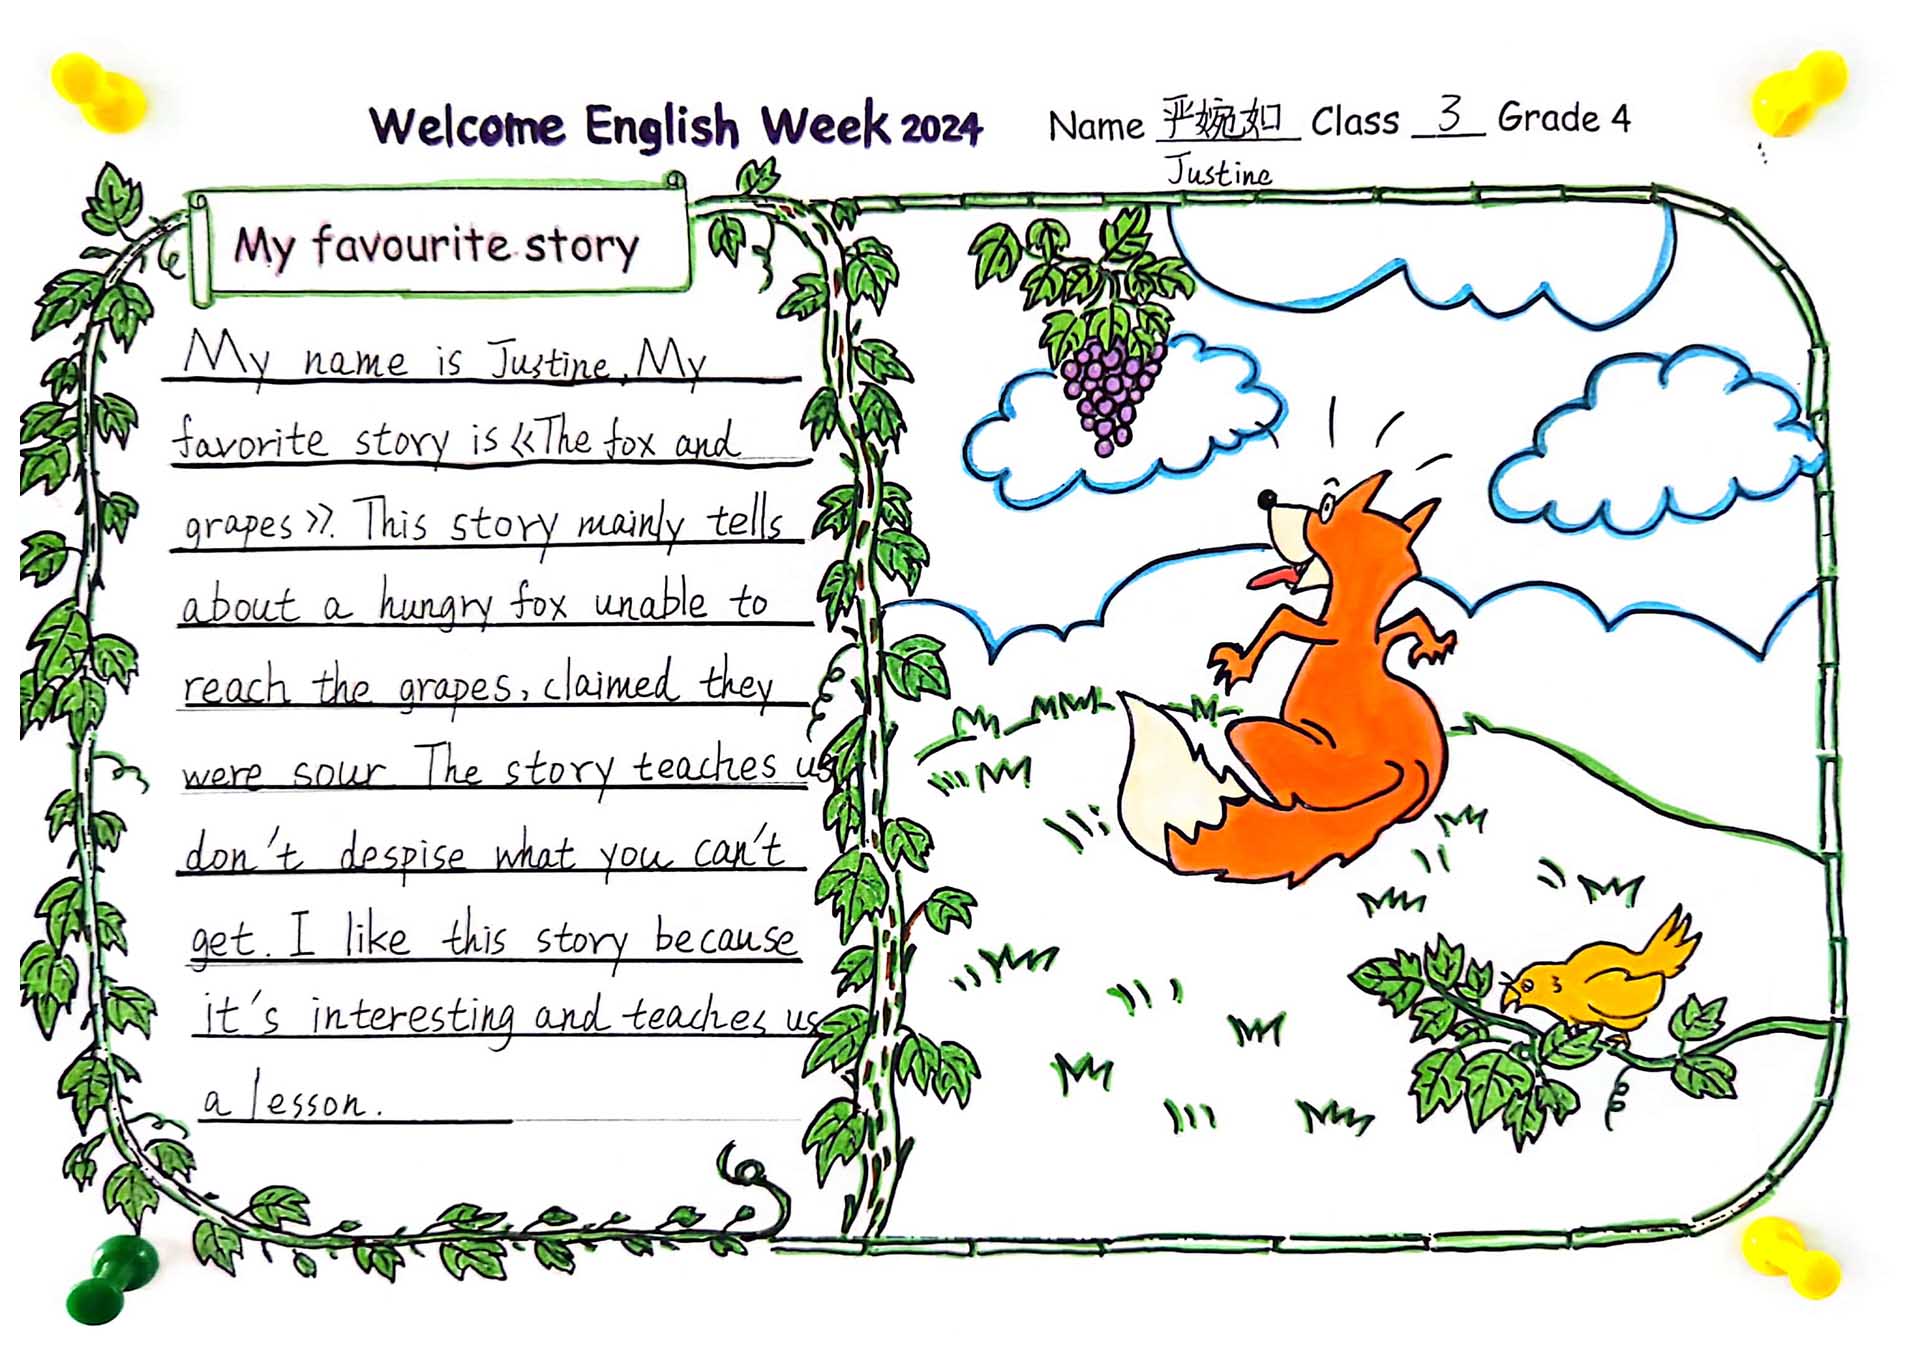 Welcome English Week 2024
Name 严婉如 Class 3 Grade 4
Justine
My favourite story
My name is Justine. My
favorite story is《The fox and
grapes》. This story mainly tells
about a hungry fox unable to
reach the grapes, claimed they
were sour. The story teaches us
don't despise what you can't
get. I like this story because
it's interesting and teaches us
a lesson.